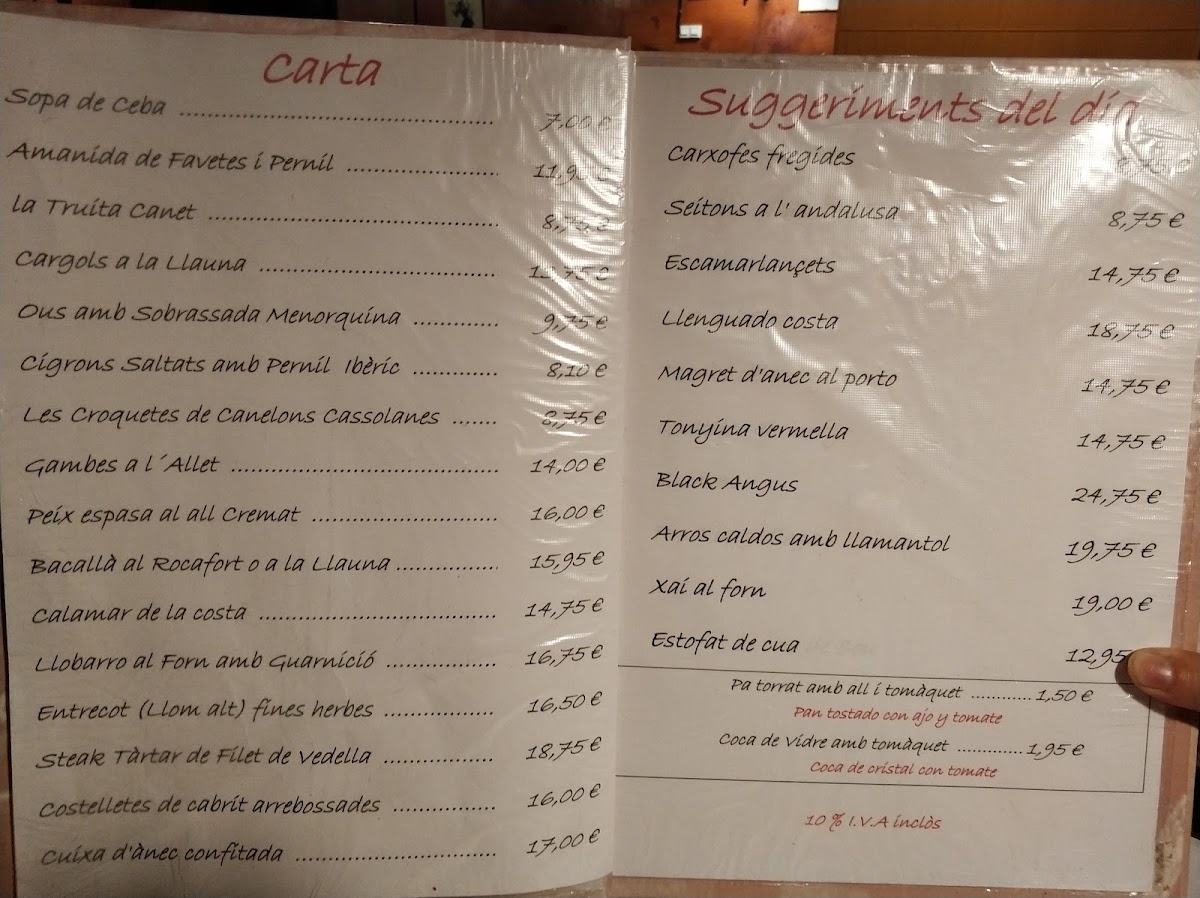 Carta
Sopa de Ceba .......... 7,00 €
Amanida de Favetes i Pernil .......... 11,95 €
la Truita Canet .......... 8,75 €
Cargols a la Llauna ..........
Ous amb Sobrassada Menorquina .......... 9,75 €
Cigrons Saltats amb Pernil Ibèric .......... 8,10 €
Les Croquetes de Canelons Cassolanes ....... 8,75 €
Gambes a l´Allet .......... 14,00 €
Peix espasa al all Cremat .......... 16,00 €
Bacallà al Rocafort o a la Llauna .......... 15,95 €
Calamar de la costa .......... 14,75 €
Llobarro al Forn amb Guarnició .......... 16,75 €
Entrecot (Llom alt) fines herbes .......... 16,50 €
Steak Tàrtar de Filet de Vedella .......... 18,75 €
Costelletes de cabrit arrebossades .......... 16,00 €
Cuixa d'ànec confitada .......... 17,00 €
Suggeriments del día
Carxofes fregides 8,75 €
Seitons a l' andalusa 8,75 €
Escamarlançets 14,75 €
Llenguado costa 18,75 €
Magret d'anec al porto 14,75 €
Tonyina vermella 14,75 €
Black Angus 24,75 €
Arros caldos amb llamantol 19,75 €
Xai al forn 19,00 €
Estofat de cua 12,95
Pa torrat amb all i tomàquet ............ 1,50 €
Pan tostado con ajo y tomate
Coca de Vidre amb tomàquet ............ 1,95 €
Coca de cristal con tomate
10 % I.V.A inclòs